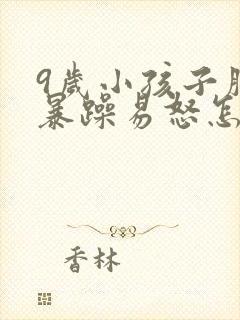 9歲小孩子
暴躁易怒怎
香林